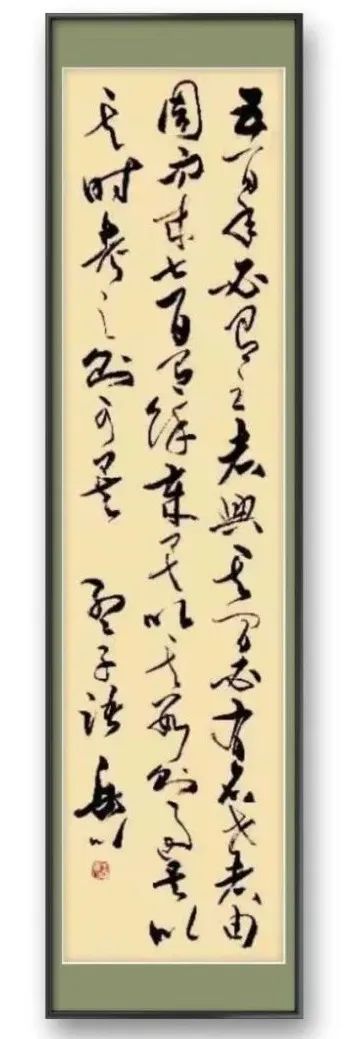 五百年必有王者興其間必有名世者由
周而來七百有餘歲矣以其數則過矣以
其时考之則可矣 孟子語 岳川